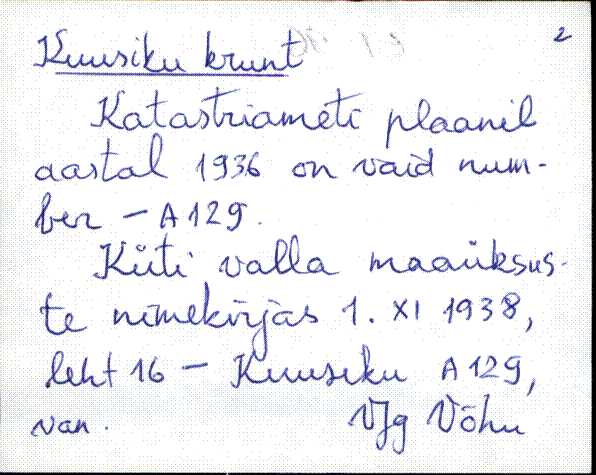 2
Kuusiku krunt
Katastriameti plaanil
aastal 1936 on vaid num-
ber - A 129.
Küti valla maaüksus-
te nimekirjas 1. XI 1938,
leht 16 - Kuusiku A 129,
van. VJg Võhu